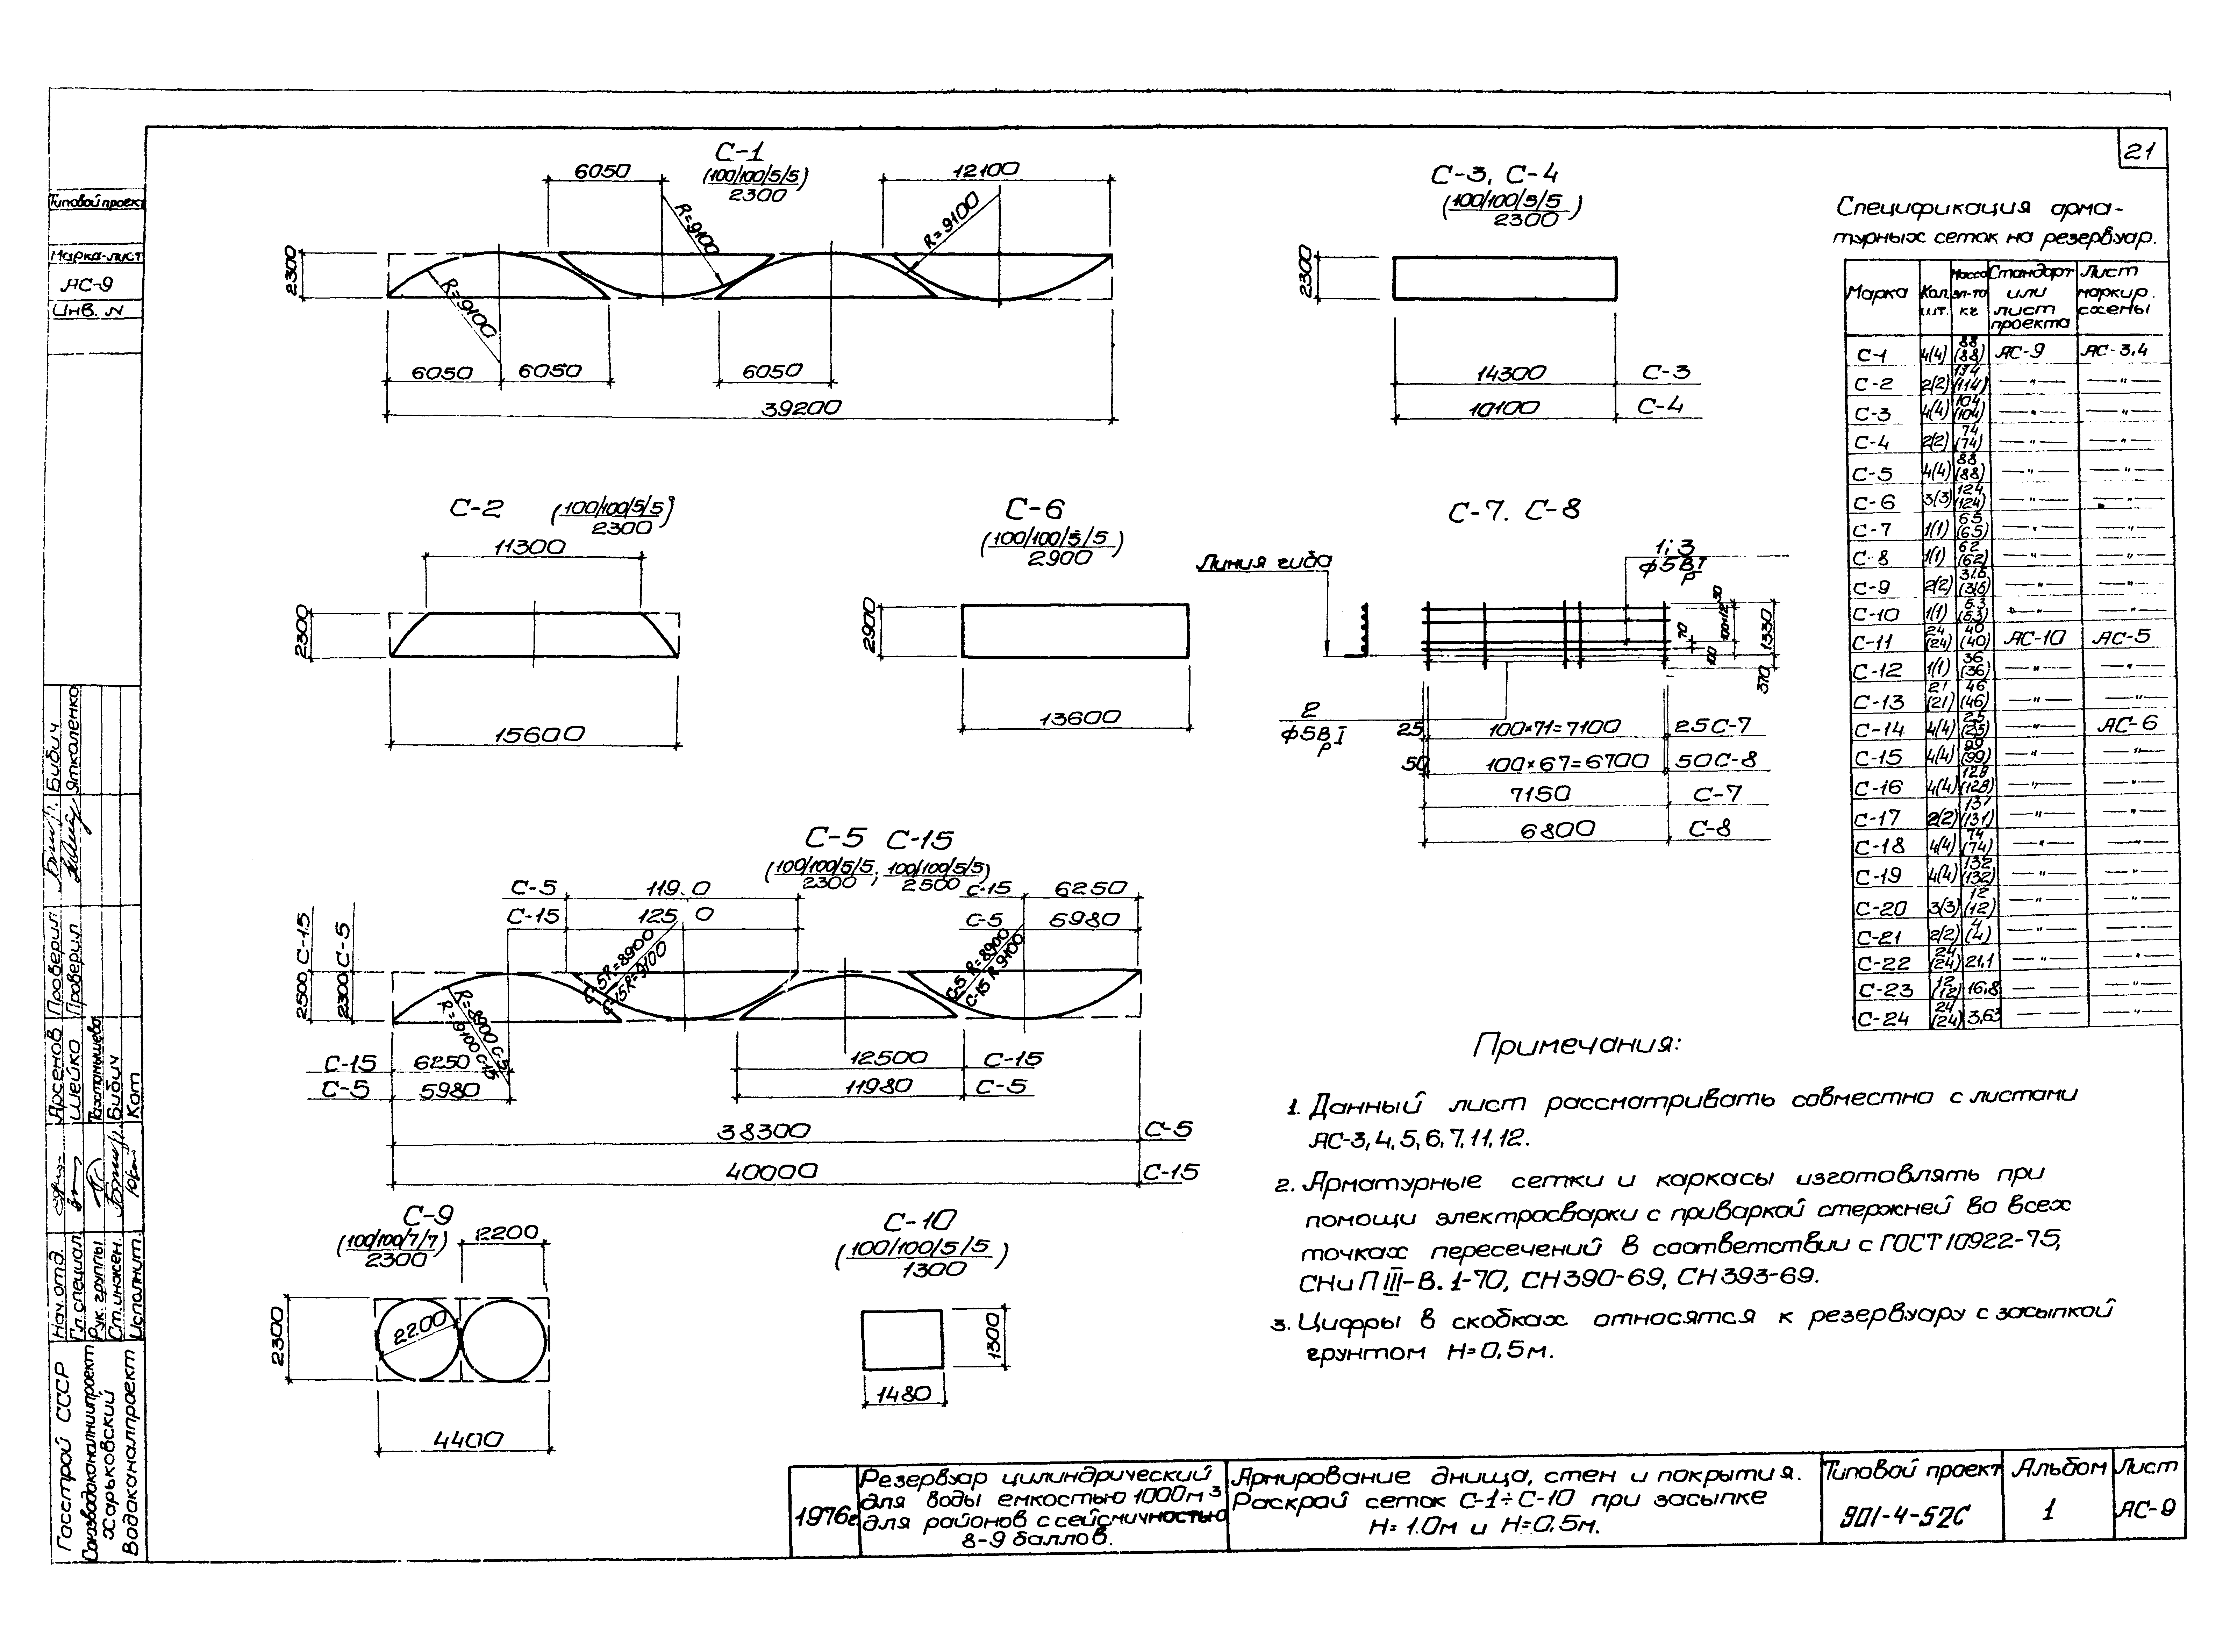 21
Типовой проект
Марка-лист
АС-9
Инв. N
С-1
(100/100/5/5)
2300
6050
12100
R=9100
R=9100
R=9100
2300
6050
6050
6050
39200
С-3, С-4
(100/100/5/5)
2300
2300
14300 С-3
10100 С-4
С-2 (100/100/5/5)
2300
11300
2300
15600
С-6
(100/100/5/5)
2900
2900
13600
С-7. С-8
Линия гиба
1; 3
ф5ВрI
50
100×12
70
100
1330
370
2
ф5ВрI
25 100×71=7100 25 С-7
50 100×67=6700 50 С-8
7150 С-7
6800 С-8
С-5 С-15
(100/100/5/5 ; 100/100/5/5)
2300 2500
С-5 119.0 С-15 6250
С-15 125 0 С-5 5980
2500 С-15
2300 С-5
R=8900 С-5
R=9100 С-15
С-5 R=8900
С-15 R=9100
С-5 R=8900
С-15 R 9100
С-15 6250 12500 С-15
С-5 5980 11980 С-5
38300 С-5
40000 С-15
С-9
(100/100/7/7)
2300
2200
2300
2200
4400
С-10
(100/100/5/5)
1300
1300
1480
Спецификация арма-
турных сеток на резервуар.
Марка Кол. шт. Масса эл-та кг Стандарт или лист проекта Лист маркир. схемы
С-1 4(4) 88 (88) АС-9 АС-3,4
С-2 2(2) (114) —"— —"—
С-3 4(4) 104 (104) —"— —"—
С-4 2(2) 74 (74) —"— —"—
С-5 4(4) 88 (88) —"— —"—
С-6 3(3) 124 (124) —"— —"—
С-7 1(1) 65 (65) —"— —"—
С-8 1(1) 62 (62) —"— —"—
С-9 2(2) 31.6 (31.6) —"— —"—
С-10 1(1) 6.3 (6.3) —"— —"—
С-11 24 (24) 40 (40) АС-10 АС-5
С-12 1(1) 36 (36) —"— —"—
С-13 21 (21) 46 (46) —"— —"—
С-14 4(4) 25 (25) —"— АС-6
С-15 4(4) 99 (99) —"— —"—
С-16 4(4) 128 (128) —"— —"—
С-17 2(2) 131 (131) —"— —"—
С-18 4(4) 74 (74) —"— —"—
С-19 4(4) 132 (132) —"— —"—
С-20 3(3) 12 (12) —"— —"—
С-21 2(2) 4 (4) —"— —"—
С-22 24 (24) 21,1 —"— —"—
С-23 12 (12) 16,8 — — —"—
С-24 24 (24) 3,63 — — —"—
Примечания:
1. Данный лист рассматривать совместно с листами
АС-3, 4, 5, 6, 7, 11, 12.
2. Арматурные сетки и каркасы изготовлять при
помощи электросварки с приваркой стержней во всех
точках пересечений в соответствии с ГОСТ 10922-75,
СНиП III-В. 1-70, СН 390-69, СН 393-69.
3. Цифры в скобках относятся к резервуару с засыпкой
грунтом Н=0,5м.
Госстрой СССР
Союзводоканалниипроект
Харьковский
Водоканалпроект
Нач. отд. Арсенов Проверил Бибич
Гл. специал. Шейко Проверил Яткаленко
Рук. группы
Ст. инжен. Бибич
Исполнит. Кот
1976г.
Резервуар цилиндрический
для воды емкостью 1000м³
для районов с сейсмичностью
8-9 баллов.
Армирование днища, стен и покрытия.
Раскрой сеток С-1÷С-10 при засыпке
Н=1.0м и Н=0,5м.
Типовой проект
901-4-52С
Альбом
1
Лист
АС-9